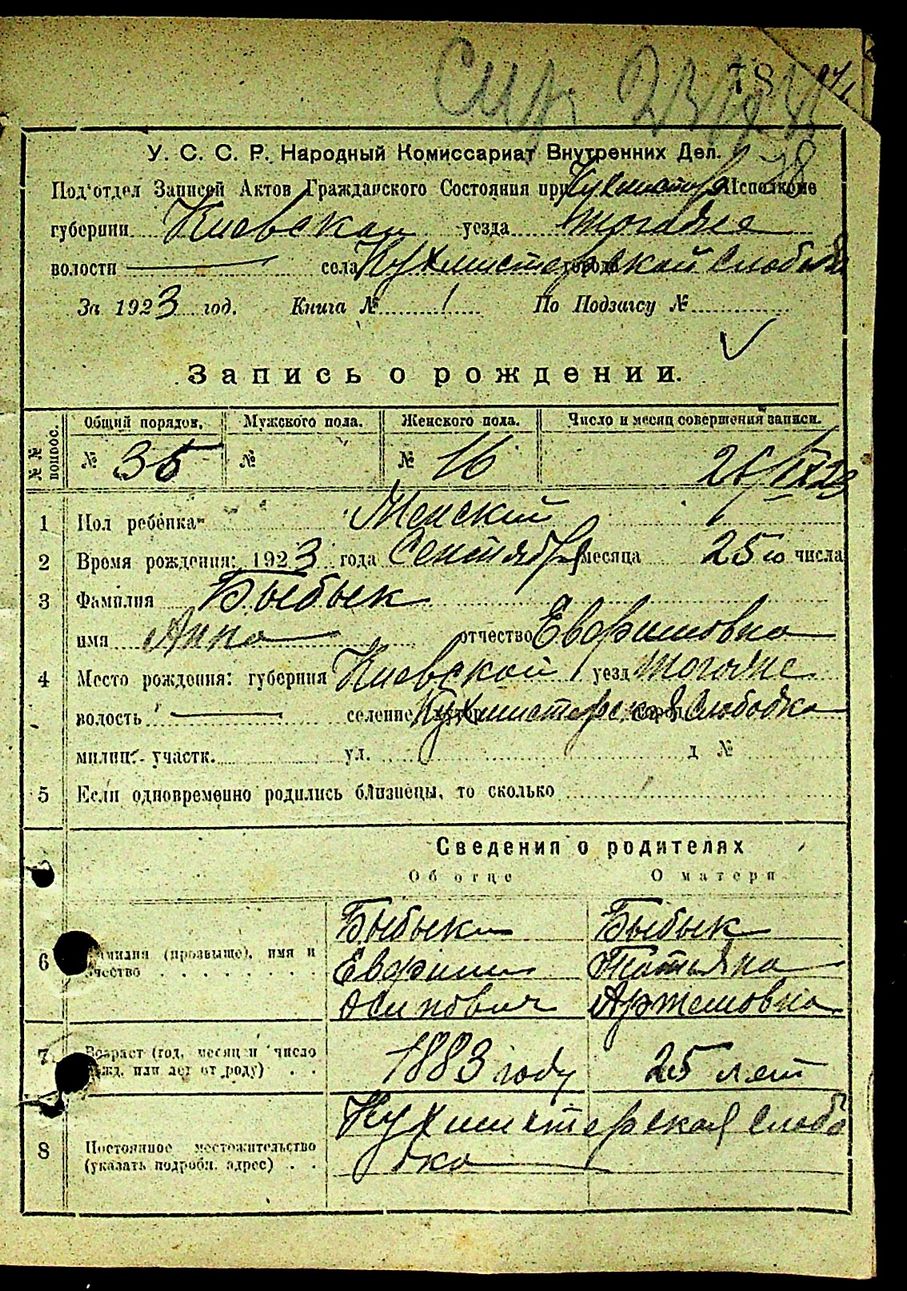 78
У. С. С. Р. Народный Комиссариат Внутренних Дел.
78
Под'отдел Записей Актов Гражданского Состояния при Кухмистер Исполкоме
губернии Киевской уезда тогоже
волости — села Кухмистерской Слободы города
За 1923 год. Книга № 1 По Подзагсу №
Запись о рождении.
№№ вопрос. Общий порядок. Мужского пола. Женского пола. Число и месяц совершения записи.
№ 35 № № 16 26/IX 23
1 Пол ребенка Женский
2 Время рождения: 1923 года Сентября месяца 25го числа
3 Фамилия Быбык
имя Анна отчество Евфимовна
4 Место рождения: губерния Киевской уезд тогоже
волость — селение Кухмистерская Слободка
милиц. участк. ул. д №
5 Если одновременно родились близнецы, то сколько
Сведения о родителях
Об отце О матери
6 Фамилия (прозвище), имя и отчество Быбык Евфим Осипович Быбык Татьяна Артемовна
7 Возраст (год, месяц и число рожд. или лет от роду) 1883 году 25 лет
8 Постоянное местожительство (указать подробн. адрес) Кухмистерская слободка